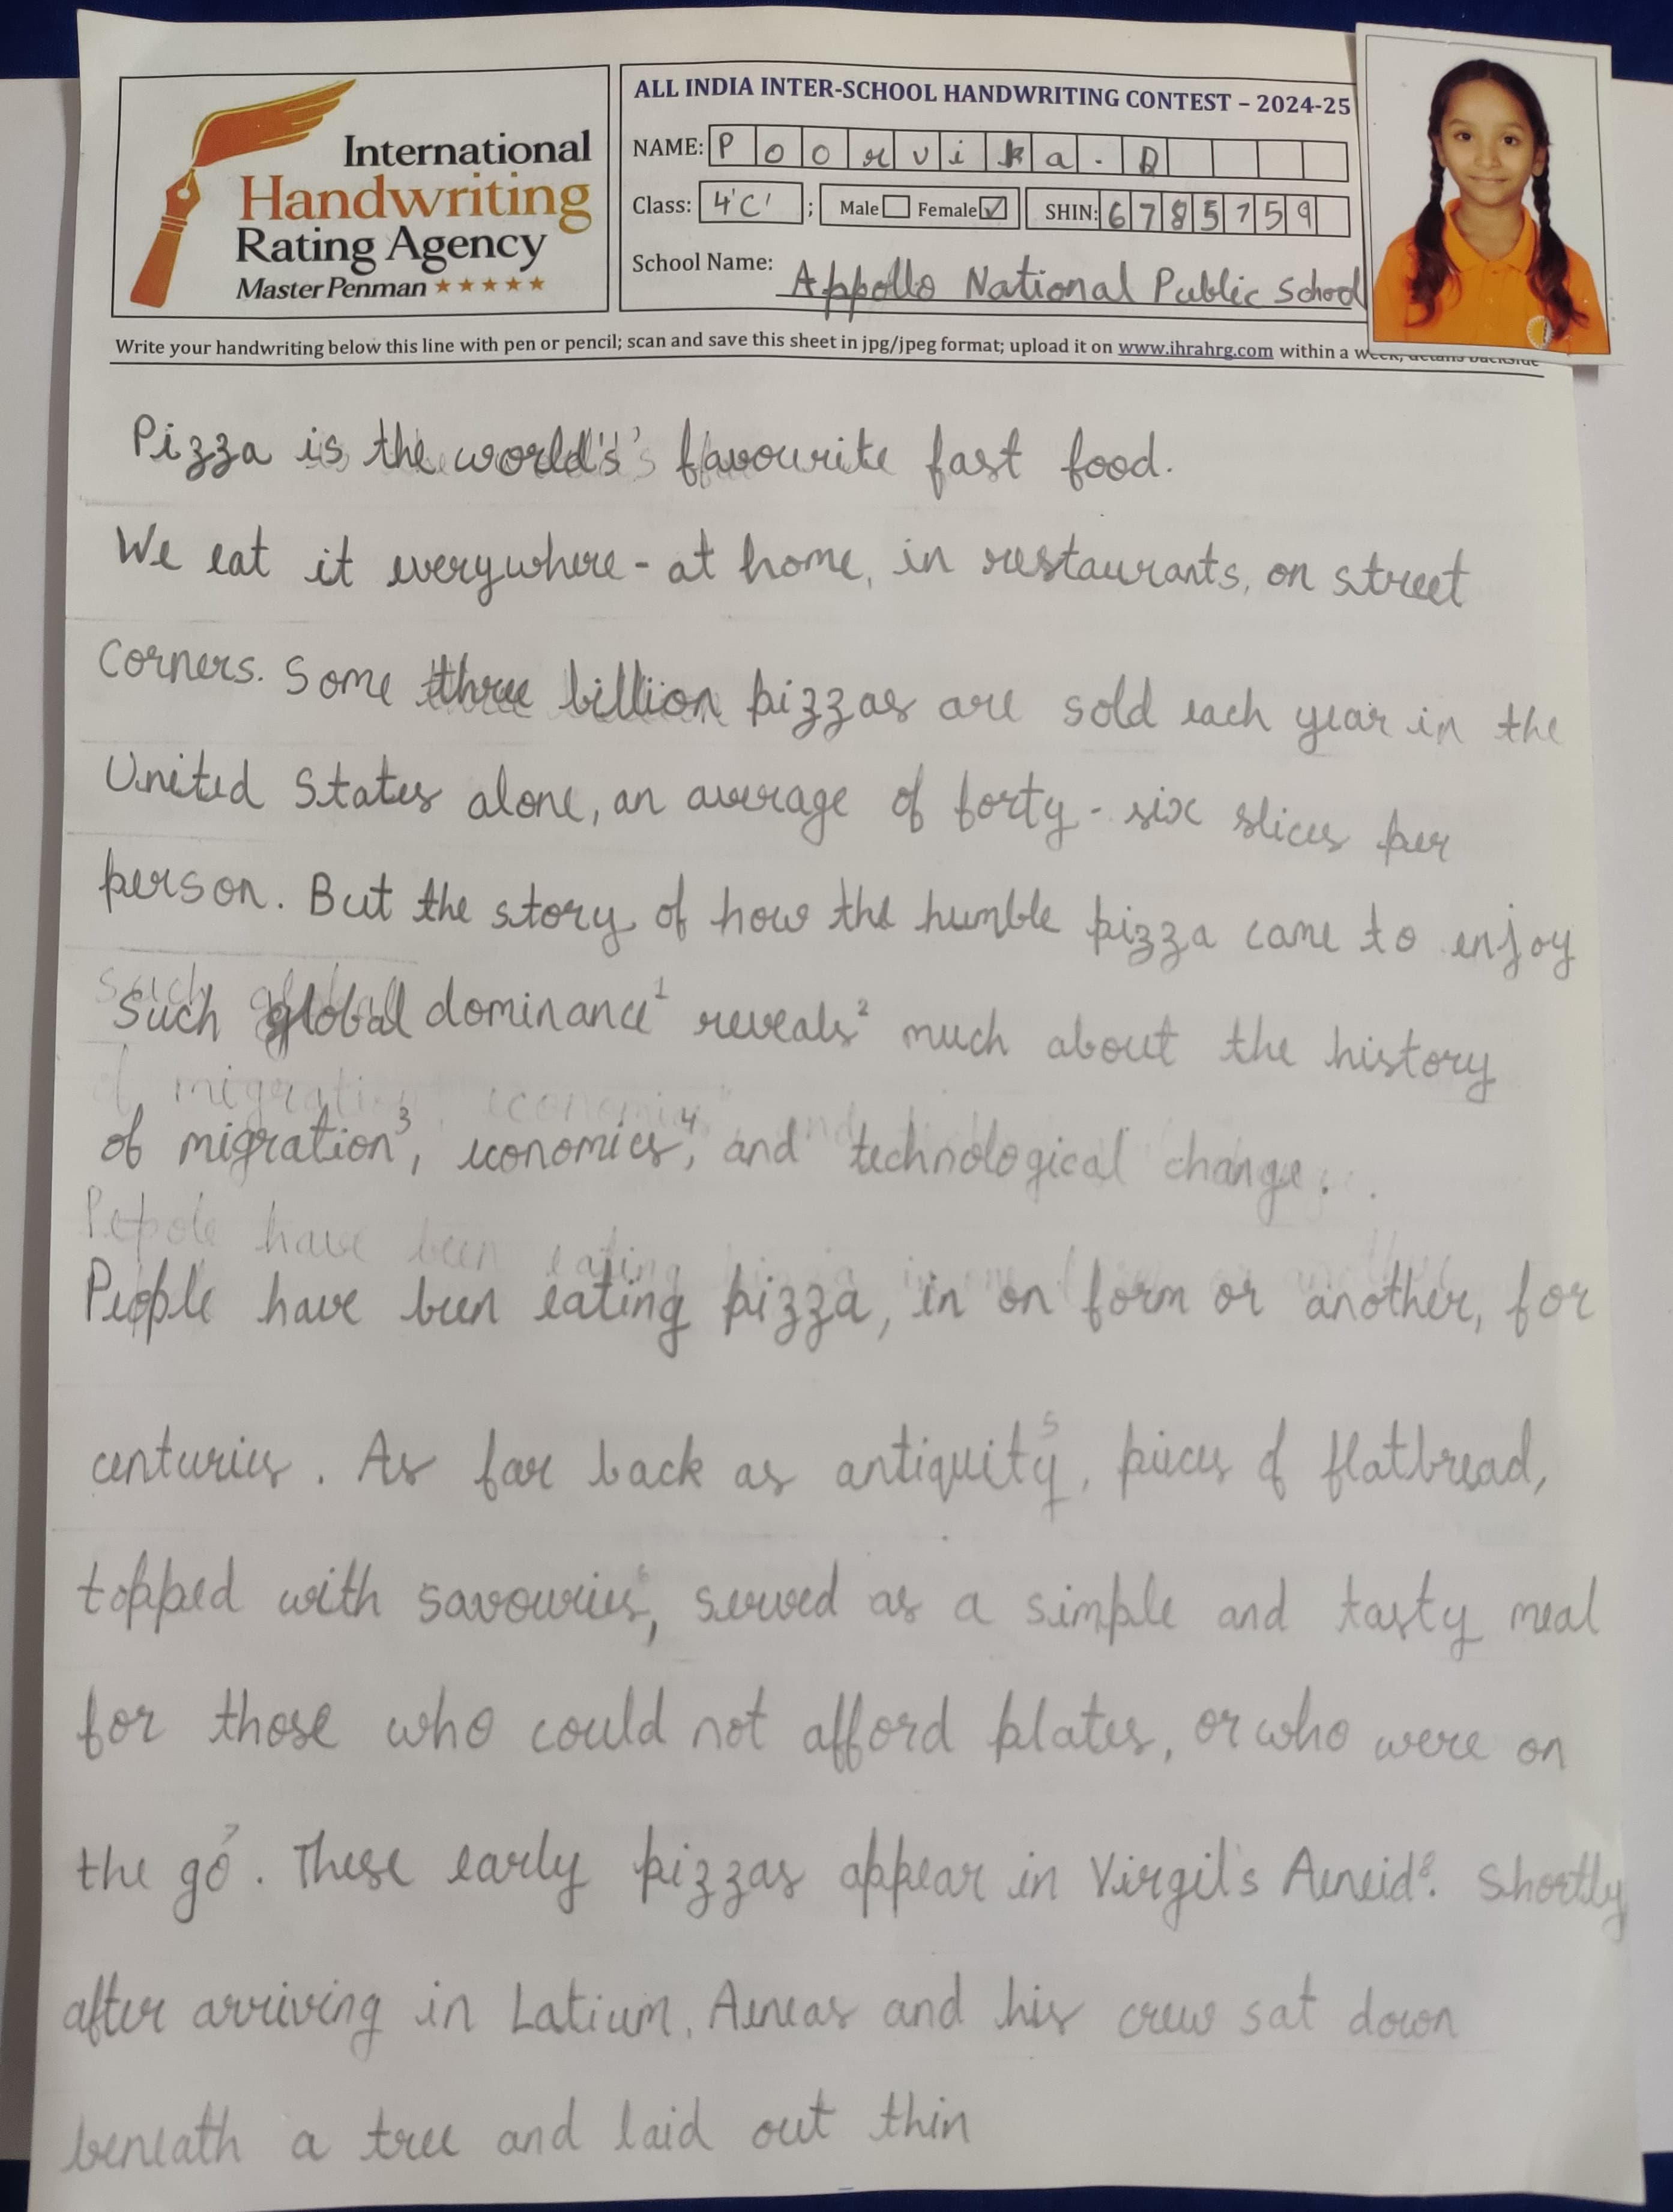 International
Handwriting
Rating Agency
Master Penman ★★★★★
ALL INDIA INTER-SCHOOL HANDWRITING CONTEST – 2024-25
NAME: Poorvika.
Class: 4'C' ; Male Female ✓ SHIN: 6785759
School Name: Appollo National Public School
Write your handwriting below this line with pen or pencil; scan and save this sheet in jpg/jpeg format; upload it on www.ihrahrg.com within a week, details backside
Pizza is the world's favourite fast food.
We eat it everywhere - at home, in restaurants, on street
corners. Some three billion pizzas are sold each year in the
United States alone, an average of forty - six slices per
person. But the story of how the humble pizza came to enjoy
Such global dominance¹ reveals² much about the history
of migration³, economics⁴, and technological change.
People have been eating pizza, in on form or another, for
centuries. As far back as antiquity⁵, pieces of flatbread,
topped with savouries⁶, served as a simple and tasty meal
for those who could not afford plates, or who were on
the go⁷. These early pizzas appear in Virgil's Aeneid⁸. Shortly
after arriving in Latium, Aeneas and his crew sat down
beneath a tree and laid out thin